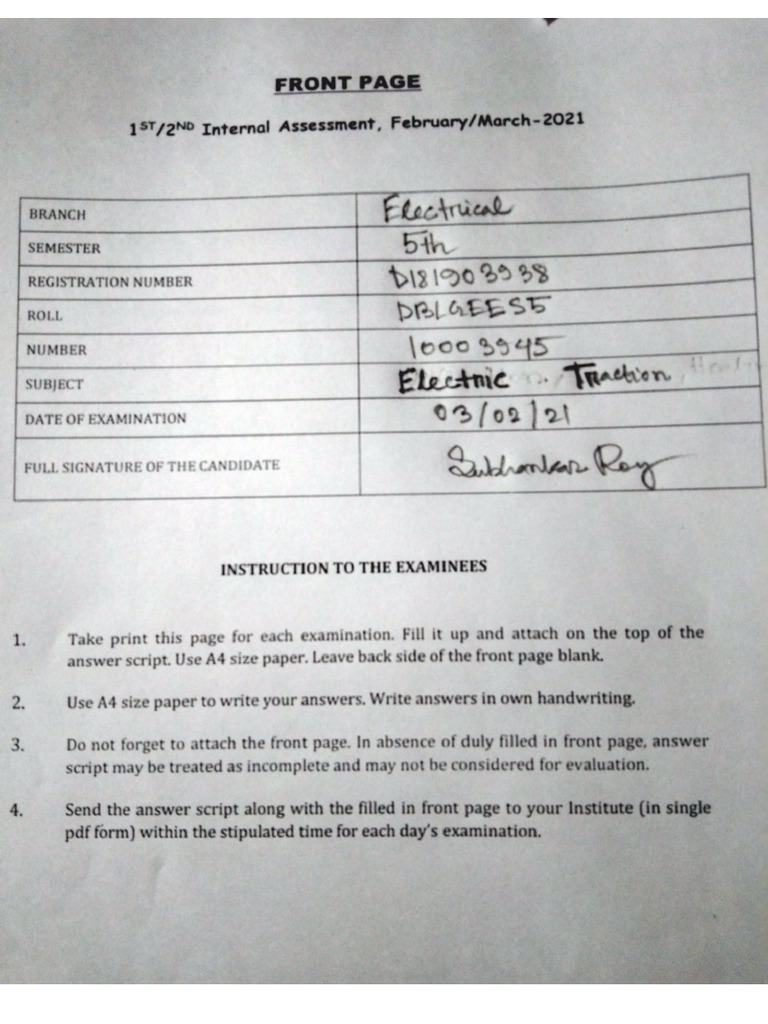 FRONT PAGE
1ST/2ND Internal Assessment, February/March-2021
BRANCH Electrical
SEMESTER 5th
REGISTRATION NUMBER D181903938
ROLL DBLGEES5
NUMBER 10003945
SUBJECT Electric Traction
DATE OF EXAMINATION 03/02/21
FULL SIGNATURE OF THE CANDIDATE Subhankar Roy
INSTRUCTION TO THE EXAMINEES
1. Take print this page for each examination. Fill it up and attach on the top of the
answer script. Use A4 size paper. Leave back side of the front page blank.
2. Use A4 size paper to write your answers. Write answers in own handwriting.
3. Do not forget to attach the front page. In absence of duly filled in front page, answer
script may be treated as incomplete and may not be considered for evaluation.
4. Send the answer script along with the filled in front page to your Institute (in single
pdf form) within the stipulated time for each day's examination.